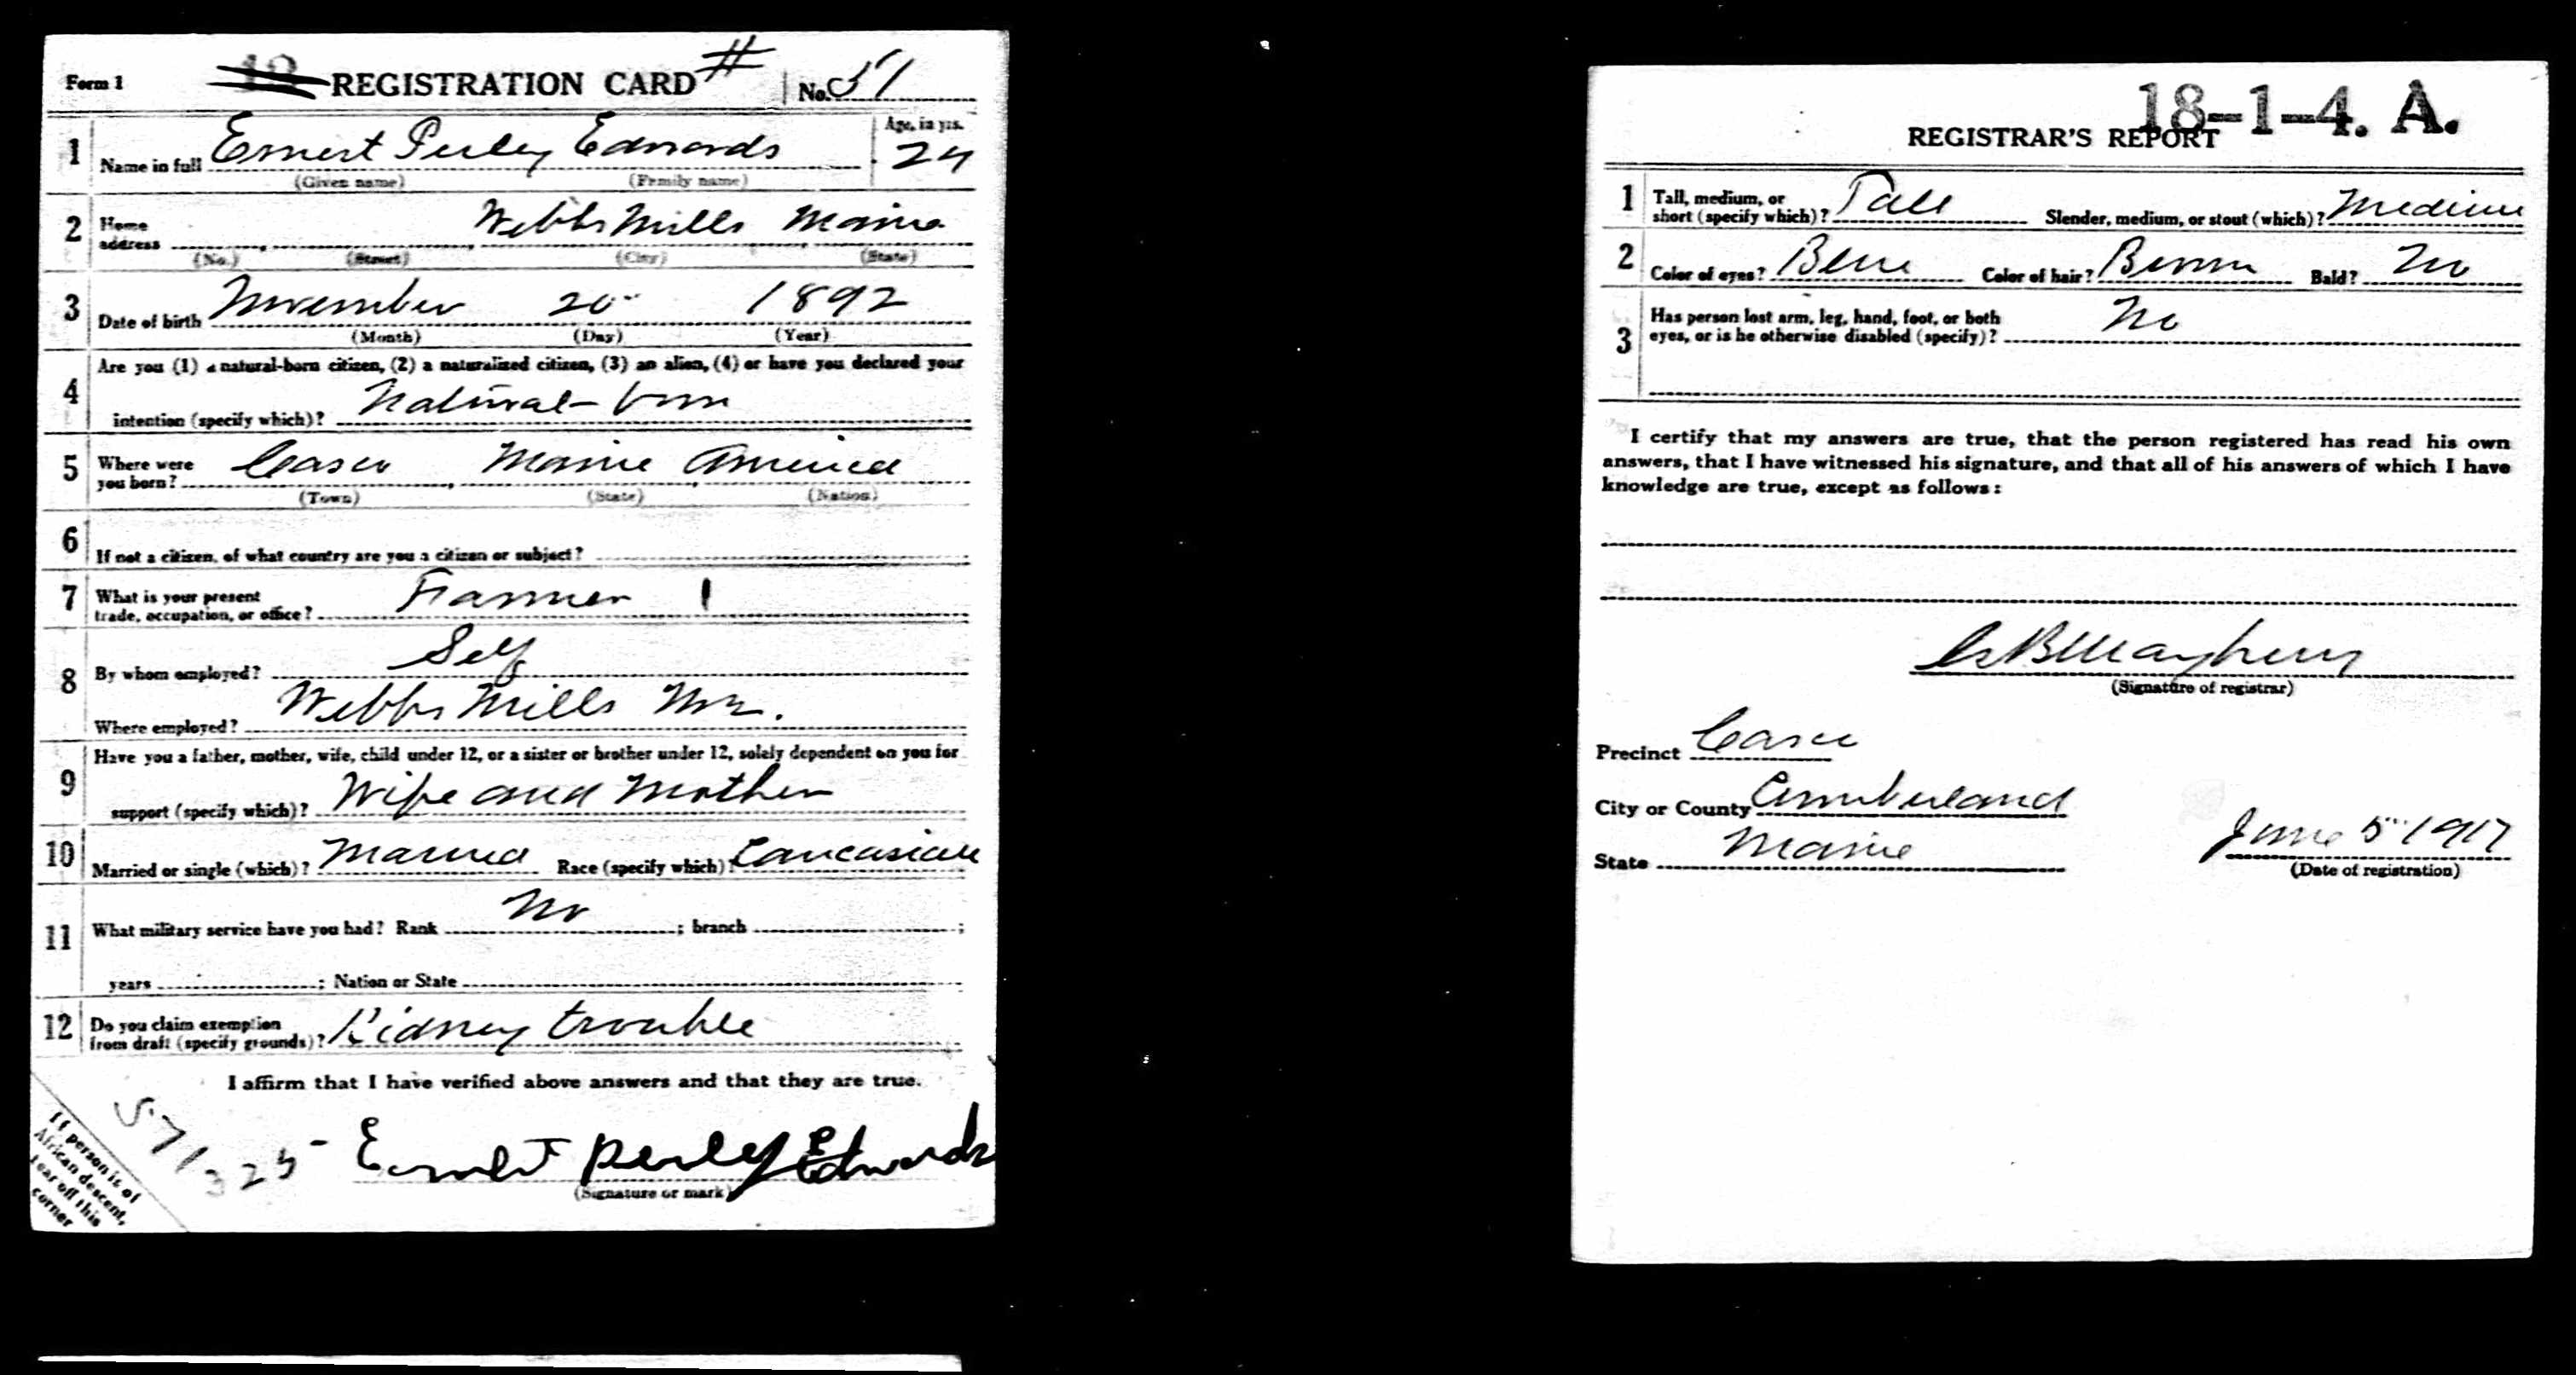 Form 1 REGISTRATION CARD # No. 51
1 Name in full Ernest Perley Edwards Age, in yrs. 24
(Given name) (Family name)
2 Home address Webbs Mills Maine
(No.) (Street) (City) (State)
3 Date of birth November 20 1892
(Month) (Day) (Year)
4 Are you (1) a natural-born citizen, (2) a naturalized citizen, (3) an alien, (4) or have you declared your
intention (specify which)? Natural-born
5 Where were you born? Casco Maine America
(Town) (State) (Nation)
6 If not a citizen, of what country are you a citizen or subject?
7 What is your present trade, occupation, or office? Farmer
8 By whom employed? Self
Where employed? Webbs Mills Me.
9 Have you a father, mother, wife, child under 12, or a sister or brother under 12, solely dependent on you for
support (specify which)? Wife and Mother
10 Married or single (which)? Married Race (specify which)? Caucasian
11 What military service have you had? Rank No ; branch ;
years ; Nation or State
12 Do you claim exemption from draft (specify grounds)? Kidney trouble
I affirm that I have verified above answers and that they are true.
Ernest Perley Edwards
(Signature or mark)
If person is of
African descent,
tear off this
corner
18-1-4. A.
REGISTRAR'S REPORT
1 Tall, medium, or short (specify which)? Tall Slender, medium, or stout (which)? Medium
2 Color of eyes? Blue Color of hair? Brown Bald? No
3 Has person lost arm, leg, hand, foot, or both
eyes, or is he otherwise disabled (specify)? No
I certify that my answers are true, that the person registered has read his own
answers, that I have witnessed his signature, and that all of his answers of which I have
knowledge are true, except as follows:
(Signature of registrar)
Precinct Casco
City or County Cumberland
State Maine
June 5 1917
(Date of registration)